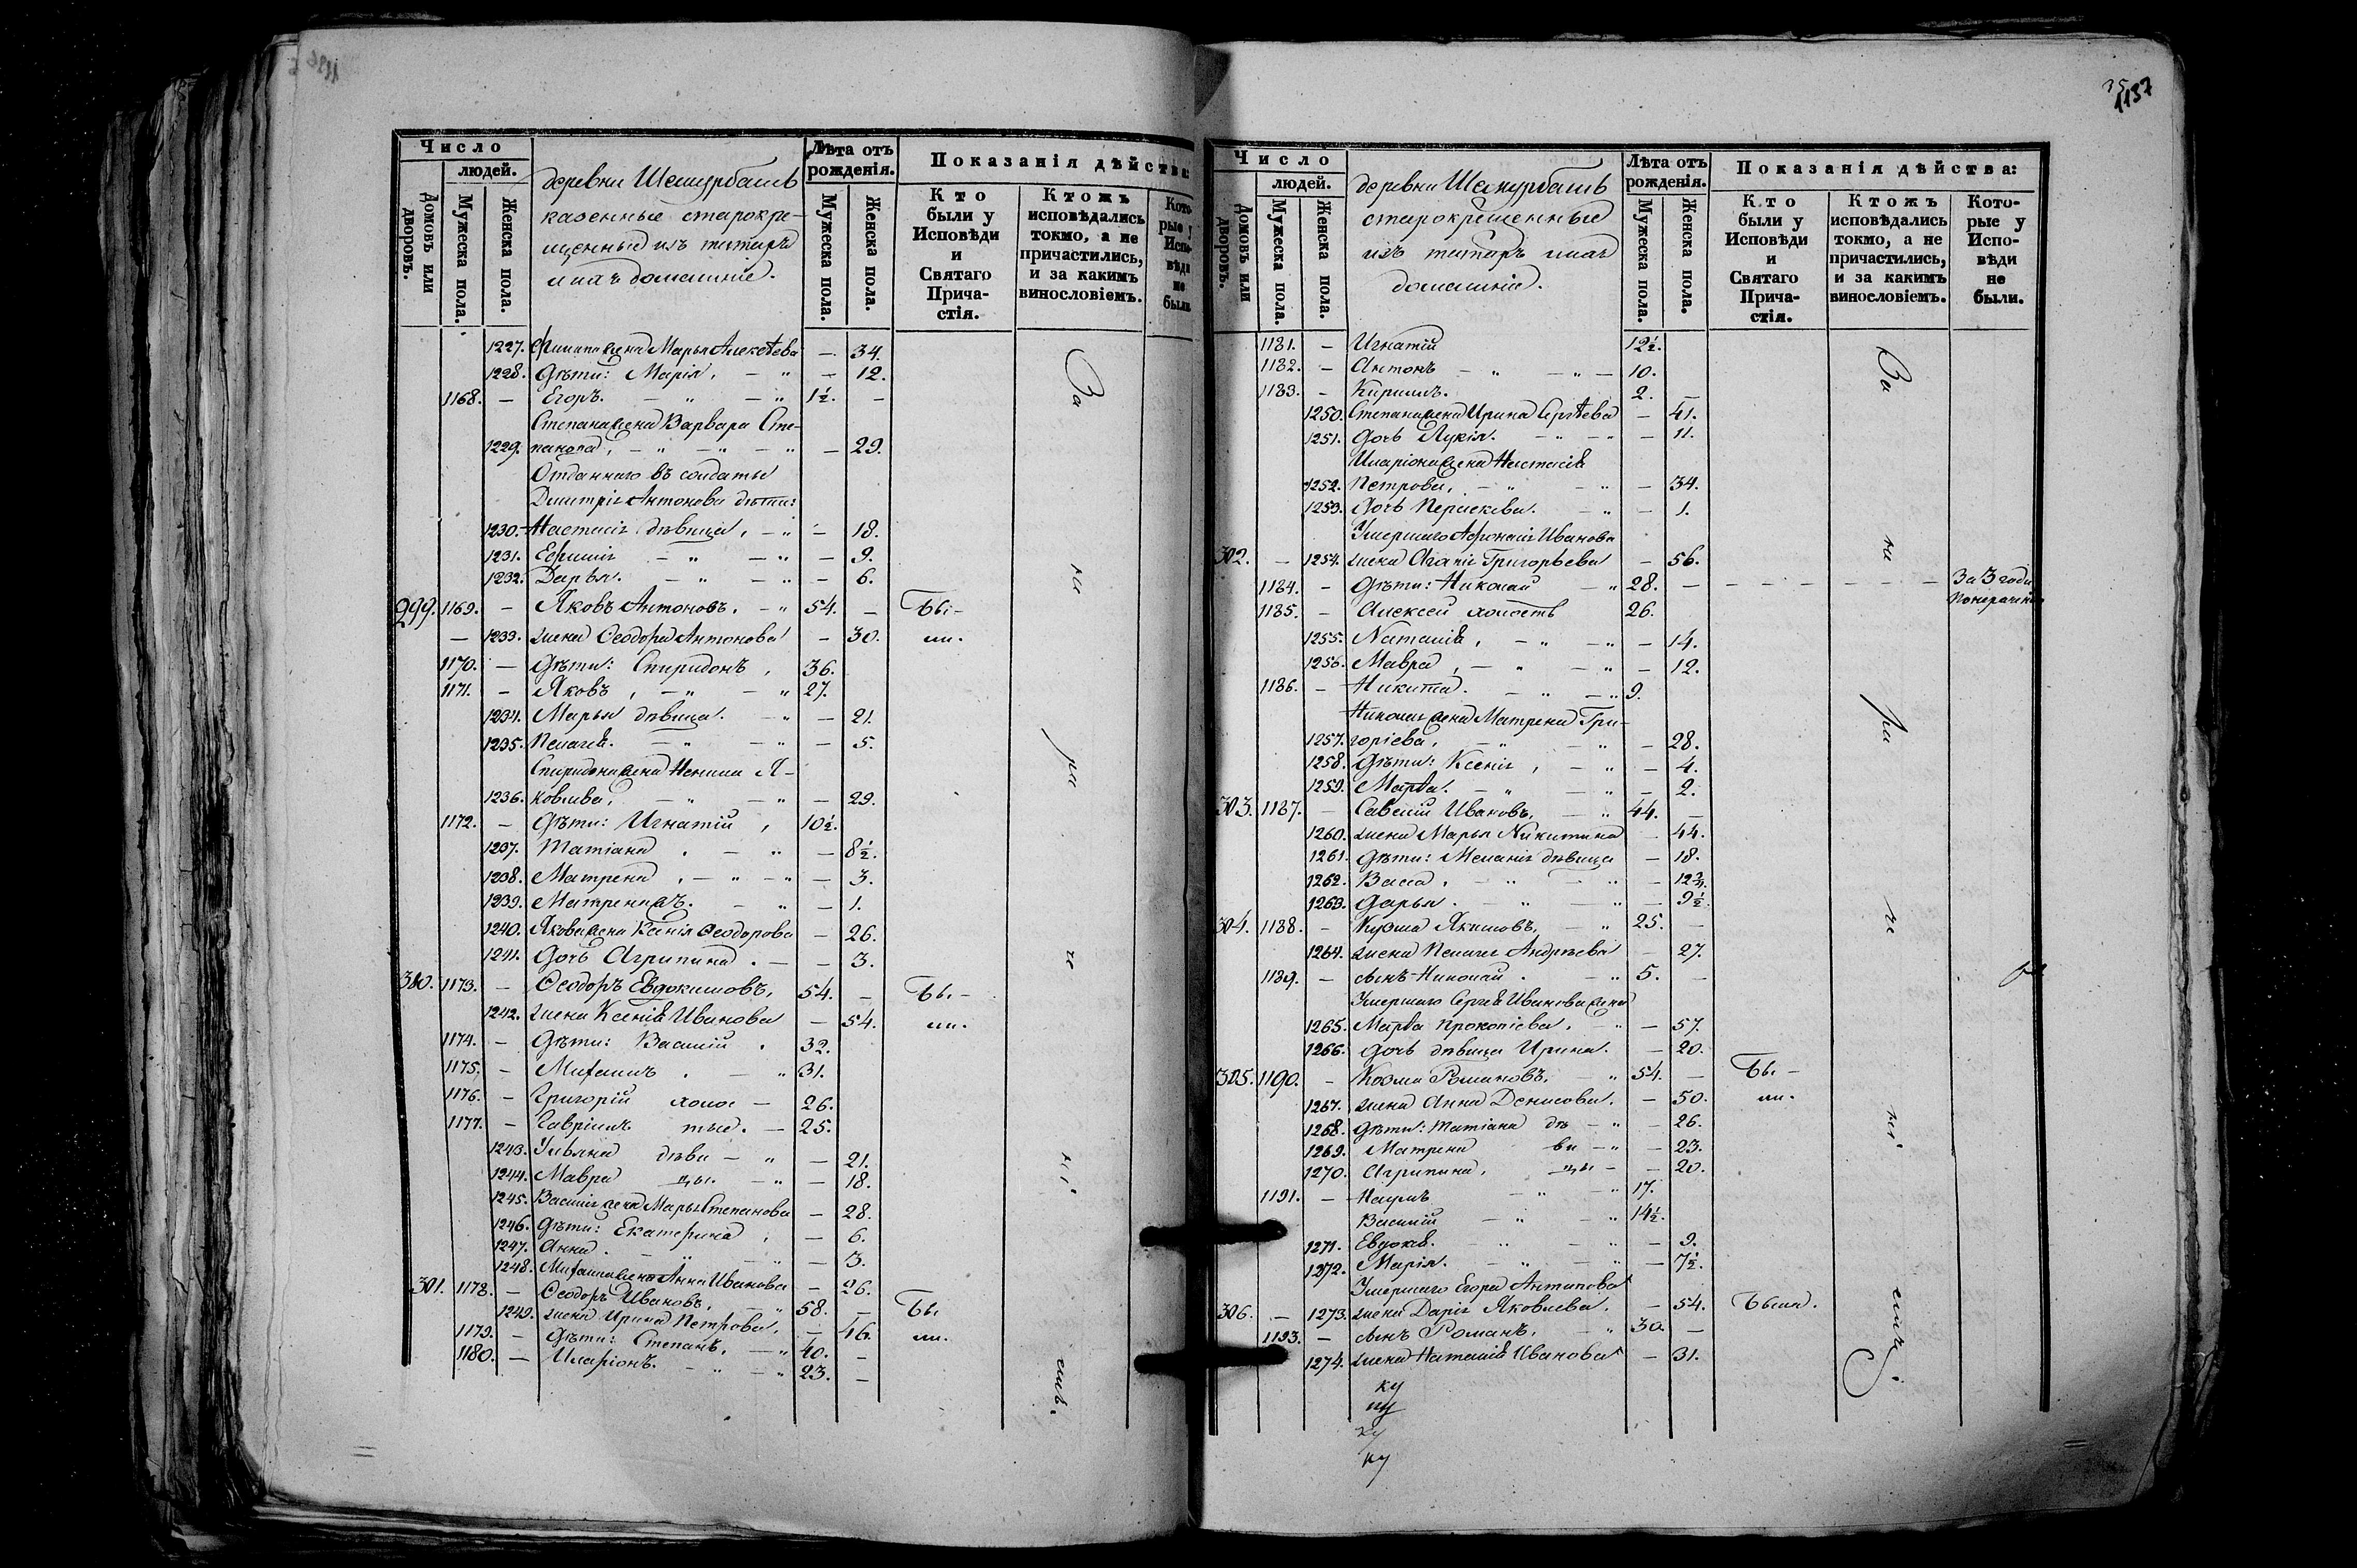 Число
людей.
Домовъ или дворовъ.
Мужеска пола.
Женска пола.
деревни Шемурбашъ
казенные старокре-
щенные изъ татаръ
и ихъ домашніе.
Лѣта отъ рожденія.
Мужеска пола.
Женска пола.
Показанія дѣйства:
Кто были у Исповѣди и Святаго Прича-стія.
Ктожъ исповѣдались токмо, а не причастились, и за какимъ винословіемъ.
Кото-рые у Испо-вѣди не были
1227. Филипа жена Марья Алексѣева — 34.
1228. Дѣти: Марія, — " — 12.
1168. — Егоръ. — " — " 1½. —
Степана жена Варвара Сте-
1229. панова, — " — " — " — 29.
Отданнаго въ солдаты
Дмитрія Антонова дѣти:
1230. Настасія дѣвица, — " — 18.
1231. Ефимія — " — " — 9.
1232. Дарья. — " — " — 6.
299. 1169. — Яковъ Антоновъ. — " 54. — Бы-
— 1233. жена Ѳеодора Антонова — 30. ли.
1170. — Дѣти: Спиридонъ, 36.
1171. — Яковъ, — " — " 27.
1234. Марья дѣвица. — " — 21.
1235. Пелагея. — " — " — 5.
Спиридона жена Ненила Я-
1236. ковлева, — " — " — 29.
1172. — Дѣти: Игнатій, 10½.
1237. Татіана. — " — 8½.
1238. Матрена, — " — " — 3.
1239. Матрена жъ. — " — 1.
1240. Якова жена Ксенія Ѳеодорова — 26.
1241. Дочь Агрипина. — — 3.
300. 1173. — Ѳеодоръ Евдокимовъ, 54. — Бы-
1242. жена Ксенія Иванова — 54. ли.
1174. — Дѣти: Василій. 32.
1175. — Михаилъ. — " 31.
1176. — Григорій холос — 26.
1177. — Гавріилъ тые. — 25.
1243. Ульяна дѣви — " — 21.
1244. Мавра цы. — " — 18.
1245. Василія жена Марья Степанова — 28.
1246. Дѣти: Екатерина, — 6.
1247. Анна. — " — " — 3.
1248. Михаила жена Анна Иванова — 26.
301. 1178. — Ѳеодоръ Ивановъ, — " 58. — Бы
1249. жена Ирина Петрова, — 46. ли.
1179. — Дѣти: Степанъ, — " 40. —
1180. — Иларіонъ. — " — " 23. —
За не ра че ні емъ.
1137
Число
людей.
Домовъ или дворовъ.
Мужеска пола.
Женска пола.
деревни Шемурбашъ
старокрещенные
изъ татаръ и ихъ
домашніе.
Лѣта отъ рожденія.
Мужеска пола.
Женска пола.
Показанія дѣйства:
Кто были у Исповѣди и Святаго Прича-стія.
Ктожъ исповѣдались токмо, а не причастились, и за какимъ винословіемъ.
Кото-рые у Испо-вѣди не были.
1181. — Игнатій 12½.
1182. — Антонъ — " — " — 10.
1183. — Кирилъ. 2. —
1250. Степана жена Ирина Сергѣева — 41.
1251. Дочь Лукія. — " — " — 11.
Иларіона жена Настасія
1252. Петрова, — " — " — 34.
1253. Дочь Параскева. — " — 1.
Умершаго Афонасія Иванова
302. — 1254. жена Агапія Григорьева — 56.
1184. — Дѣти: Николай — " 28. — За 3 года по нераченію
1185. — Алексей холостъ 26.
1255. Наталія, — " — " — 14.
1256. Мавра, — " — " — 12.
1186. — Никита. — " — " 9.
Николая жена Матрена Гри-
1257. горіева, — " — " — 28.
1258. Дѣти: Ксенія, — " — 4.
1259. Марѳа. — " — " — 2.
303. 1187. — Савелій Ивановъ, — " 44. —
1260. жена Марья Никитина — 44.
1261. Дѣти: Меланія дѣвица — 18.
1262. Васса, — " — " — 12¾.
1263. Дарья. — " — " — 9½.
304. 1188. — Кузма Якимовъ, — " 25. —
1264. жена Пелагея Андрѣева — 27.
1189. — сынъ Николай. — " 5. —
Умершаго Сергея Иванова жена
1265. Марѳа Прокопіева, — " — 57.
1266. дочь дѣвица Ирина. — 20.
305. 1190. — Козма Романовъ, — " 54. — Бы-
1267. жена Анна Денисова. — 50. ли.
1268. Дѣти: Татіана дѣ — " — 26.
1269. Матрена ви — " — 23.
1270. Агрипина, цы — — 20.
1191. — Наумъ — " — " 17.
Василій — " — " 14½.
1271. Евдокія. — " — " — 9.
1272. Марія. — " — " — 7½.
Умершаго Егора Антипова
306. — 1273. жена Дарія Яковлева. — 54. Была.
1193. — сынъ Романъ, — " 30. —
1274. жена Наталія Иванова — 31.
За не ра че ні емъ.